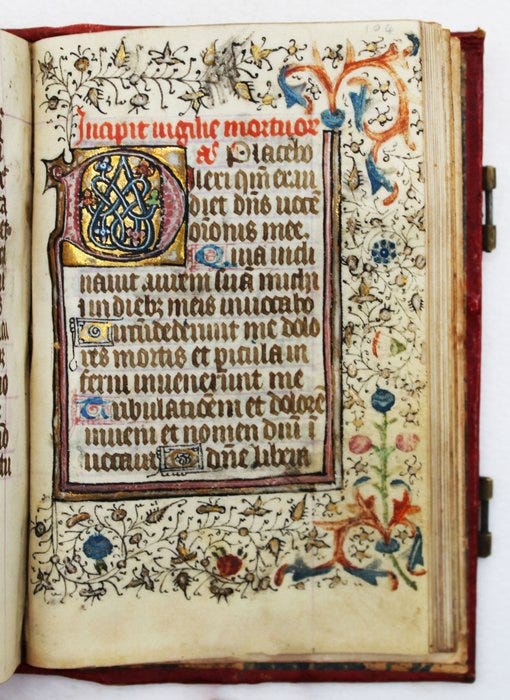 104
Incipit uigilie mortuor
aͣ Placebo
ilexi qm̄ exau
diet dn̄s uocē
or̄onis mee.
Quia incli
nauit aurem suā michi
in diebꝫ meis inuocabo
Circūdederunt me dolo
res mortis et ꝑicula in
ferni inuenerunt me
Tribulationem et dolorē
inueni et nomen dn̄i ī
uocaui O dn̄e libera